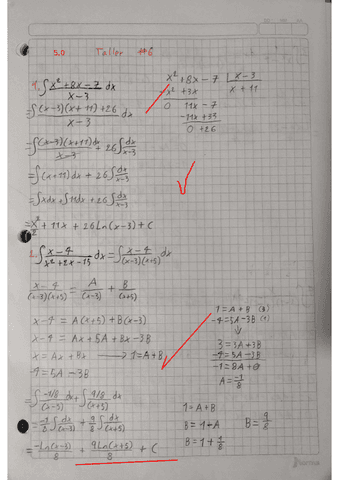 5.0 Taller #6
1. ∫ x²+8x-7 / x-3 dx
x²+8x-7 | x-3
-x²+3x x+11
0 11x-7
-11x+33
0 +26
=∫ (x-3)(x+11)+26 / x-3 dx
=∫ (x-3)(x+11)dx / x-3 + 26∫ dx / x-3
=∫(x+11)dx + 26∫ dx / x-3
=∫xdx+∫11dx+26∫ dx / x-3
= x²/2 + 11x + 26Ln(x-3)+C
2. ∫ x-4 / x²+2x-15 dx = ∫ x-4 / (x-3)(x+5) dx
x-4 / (x-3)(x+5) = A / (x-3) + B / (x+5)
x-4 = A(x+5)+B(x-3)
x-4 = Ax+5A+Bx-3B
x = Ax+Bx → 1=A+B
-4=5A-3B
1=A+B (3)
-4=5A-3B
3=3A+3B
-4=5A-3B
-1=8A+0
A=-1/8
=∫ -1/8 / (x-3) dx+∫ 9/8 / (x+5) dx
= -1/8 ∫ dx / (x-3) + 9/8 ∫ dx / (x+5)
= -Ln(x-3) / 8 + 9Ln(x+5) / 8 + C
1=A+B
B=1-A
B=1+1/8
B=9/8